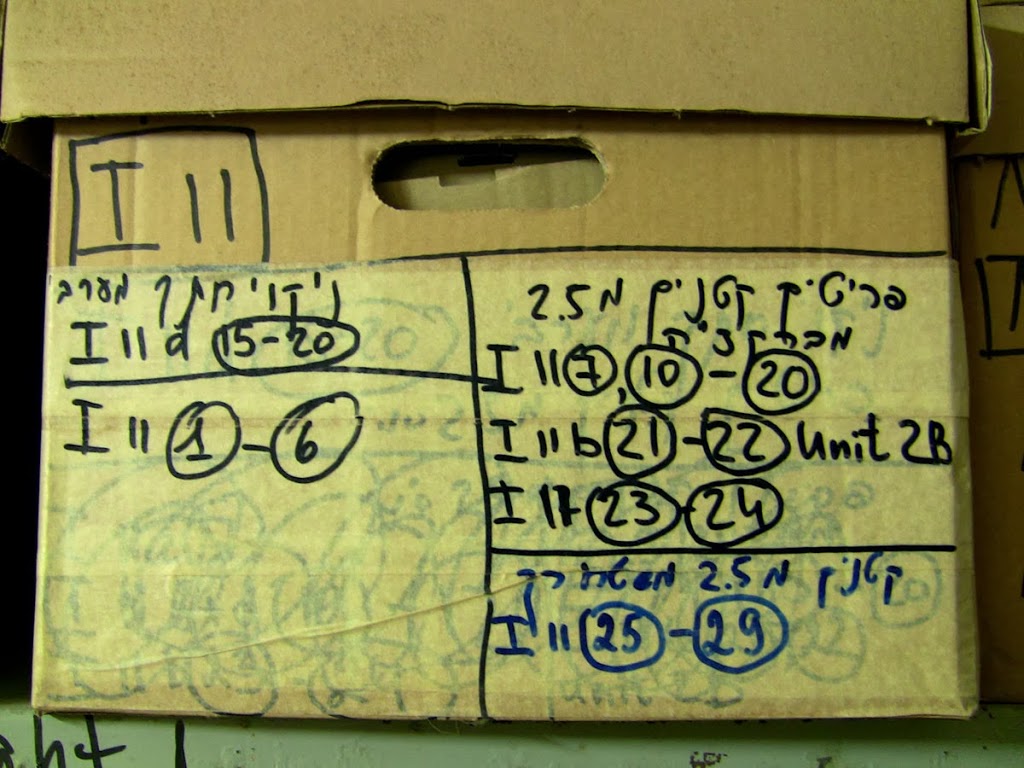 I 11
ניקוי חתך מערב
I 11 d 15-20
I 11 1-6
פריטים קטנים מ 2.5
I 11 7, 10-20
I 11 b 21-22 Unit 2B
I 11 23-24
קטנים מ 2.5
I 11 25-29